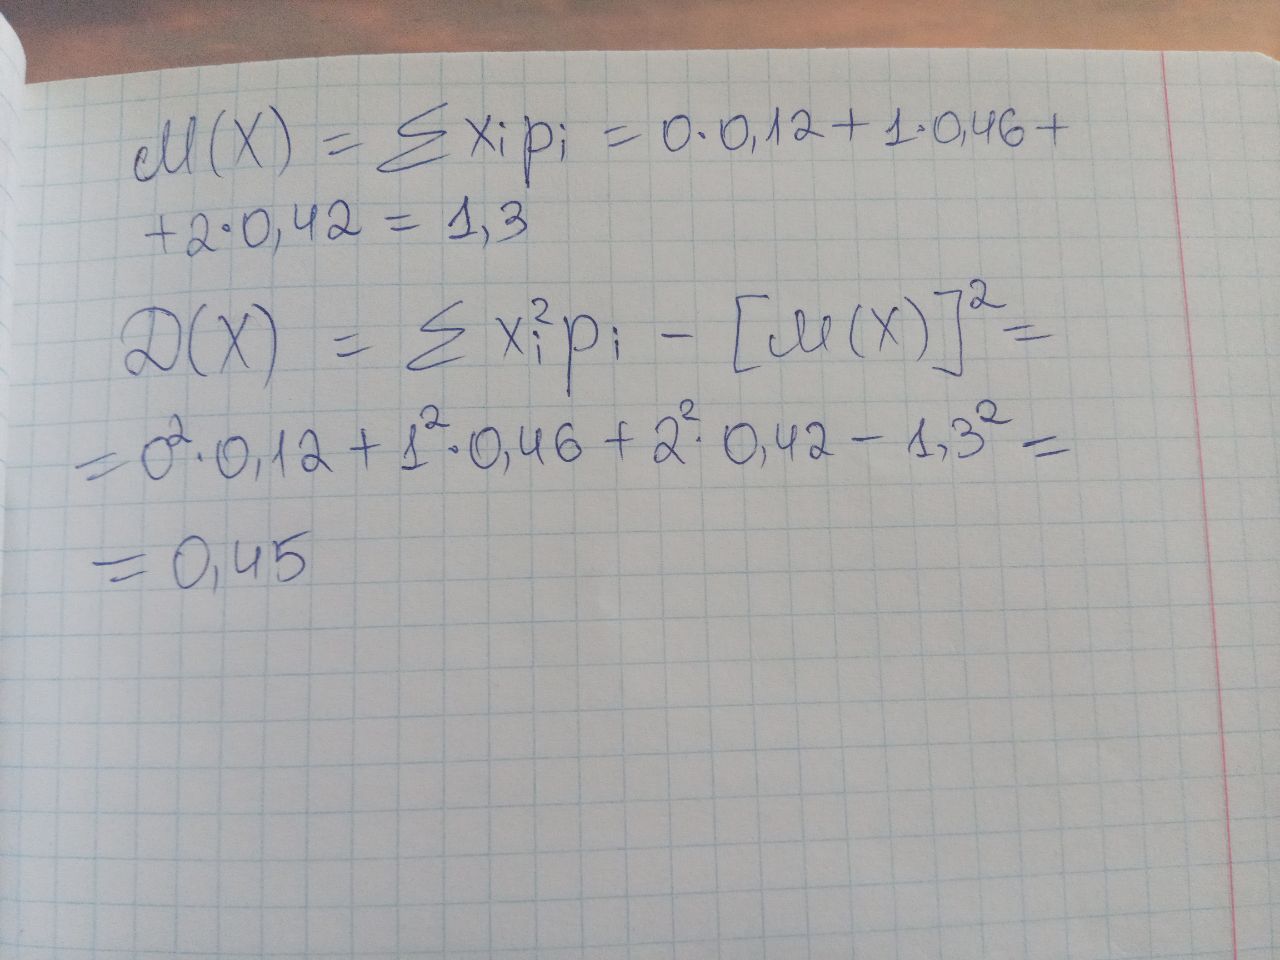 M(X) = ∑ xᵢ pᵢ = 0·0,12 + 1·0,46 +
+ 2·0,42 = 1,3
D(X) = ∑ xᵢ² pᵢ − [M(X)]² =
= 0²·0,12 + 1²·0,46 + 2²·0,42 − 1,3² =
= 0,45